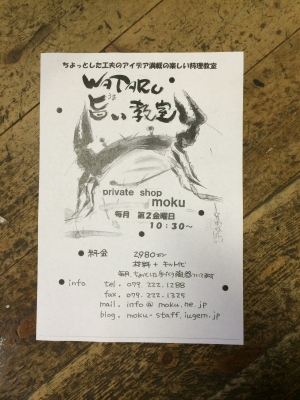 ちょっとした工夫のアイデア満載の楽しい料理教室
WATARU
旨い教室
private shop
moku
毎月 第2金曜日
10:30～
料金 2980
材料+キット代
毎月
info tel. 079.222.1288
fax. 079.222.1325
mail. info@moku.ne.jp
blog. moku-staff.iugem.jp